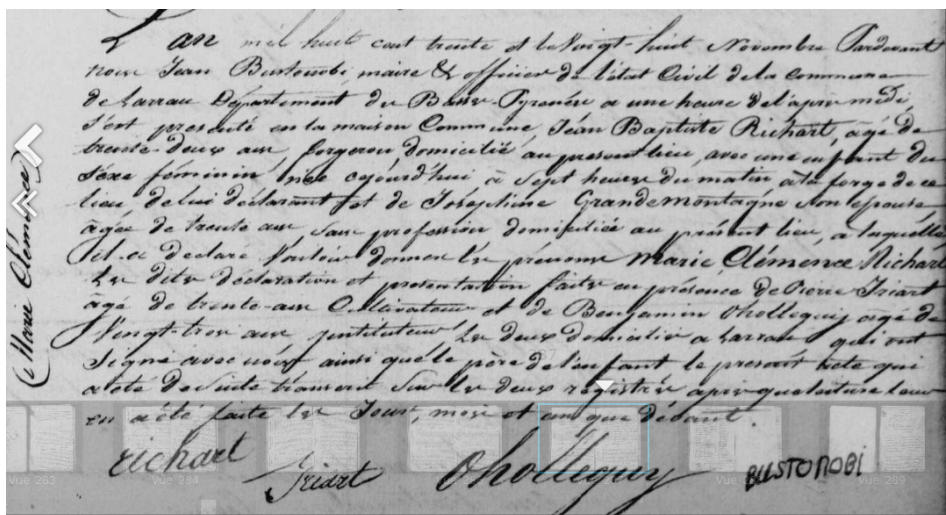 L'an mil huit cent trente et le Vingt-huit Novembre Pardevant
nous Jean Bustonobi maire & officier de l'état Civil de la commune
de Larrau Département des Basses-Pyrenées a une heure de l'après midi,
s'est presenté en la maison Commune, Jean Baptiste Richart, agé de
trente-deux ans forgeron, domicilié au present lieu, avec une enfant du
séxe féminin née cejourd'hui à Sept heures du matin à la forge de ce
lieu de lui déclarant et de Josephine Grandemontagne son epouse
agée de trente ans sans profession domiciliée au présent lieu, a laquelle
il a declaré Vouloir donner les prenoms Marie Clémence Richart
Les dites déclaration et presentation faites en présence de Pierre Iriart
agé de trente-ans Cultivateur et de Benjamin Oholleguy agé de
Vingt-trois ans instituteur Les deux domiciliés a Larrau qui ont
Signé avec nous ainsi que le père de l'enfant le present acte qui
a été de suite transcrit sur les deux registres après que lecture leur
en a été faite les Jour, mois et an que devant.
(Marie Clémence)
richart
Iriart
Oholleguy
BUSTONOBI
Vue 283
Vue 284
Vue 289